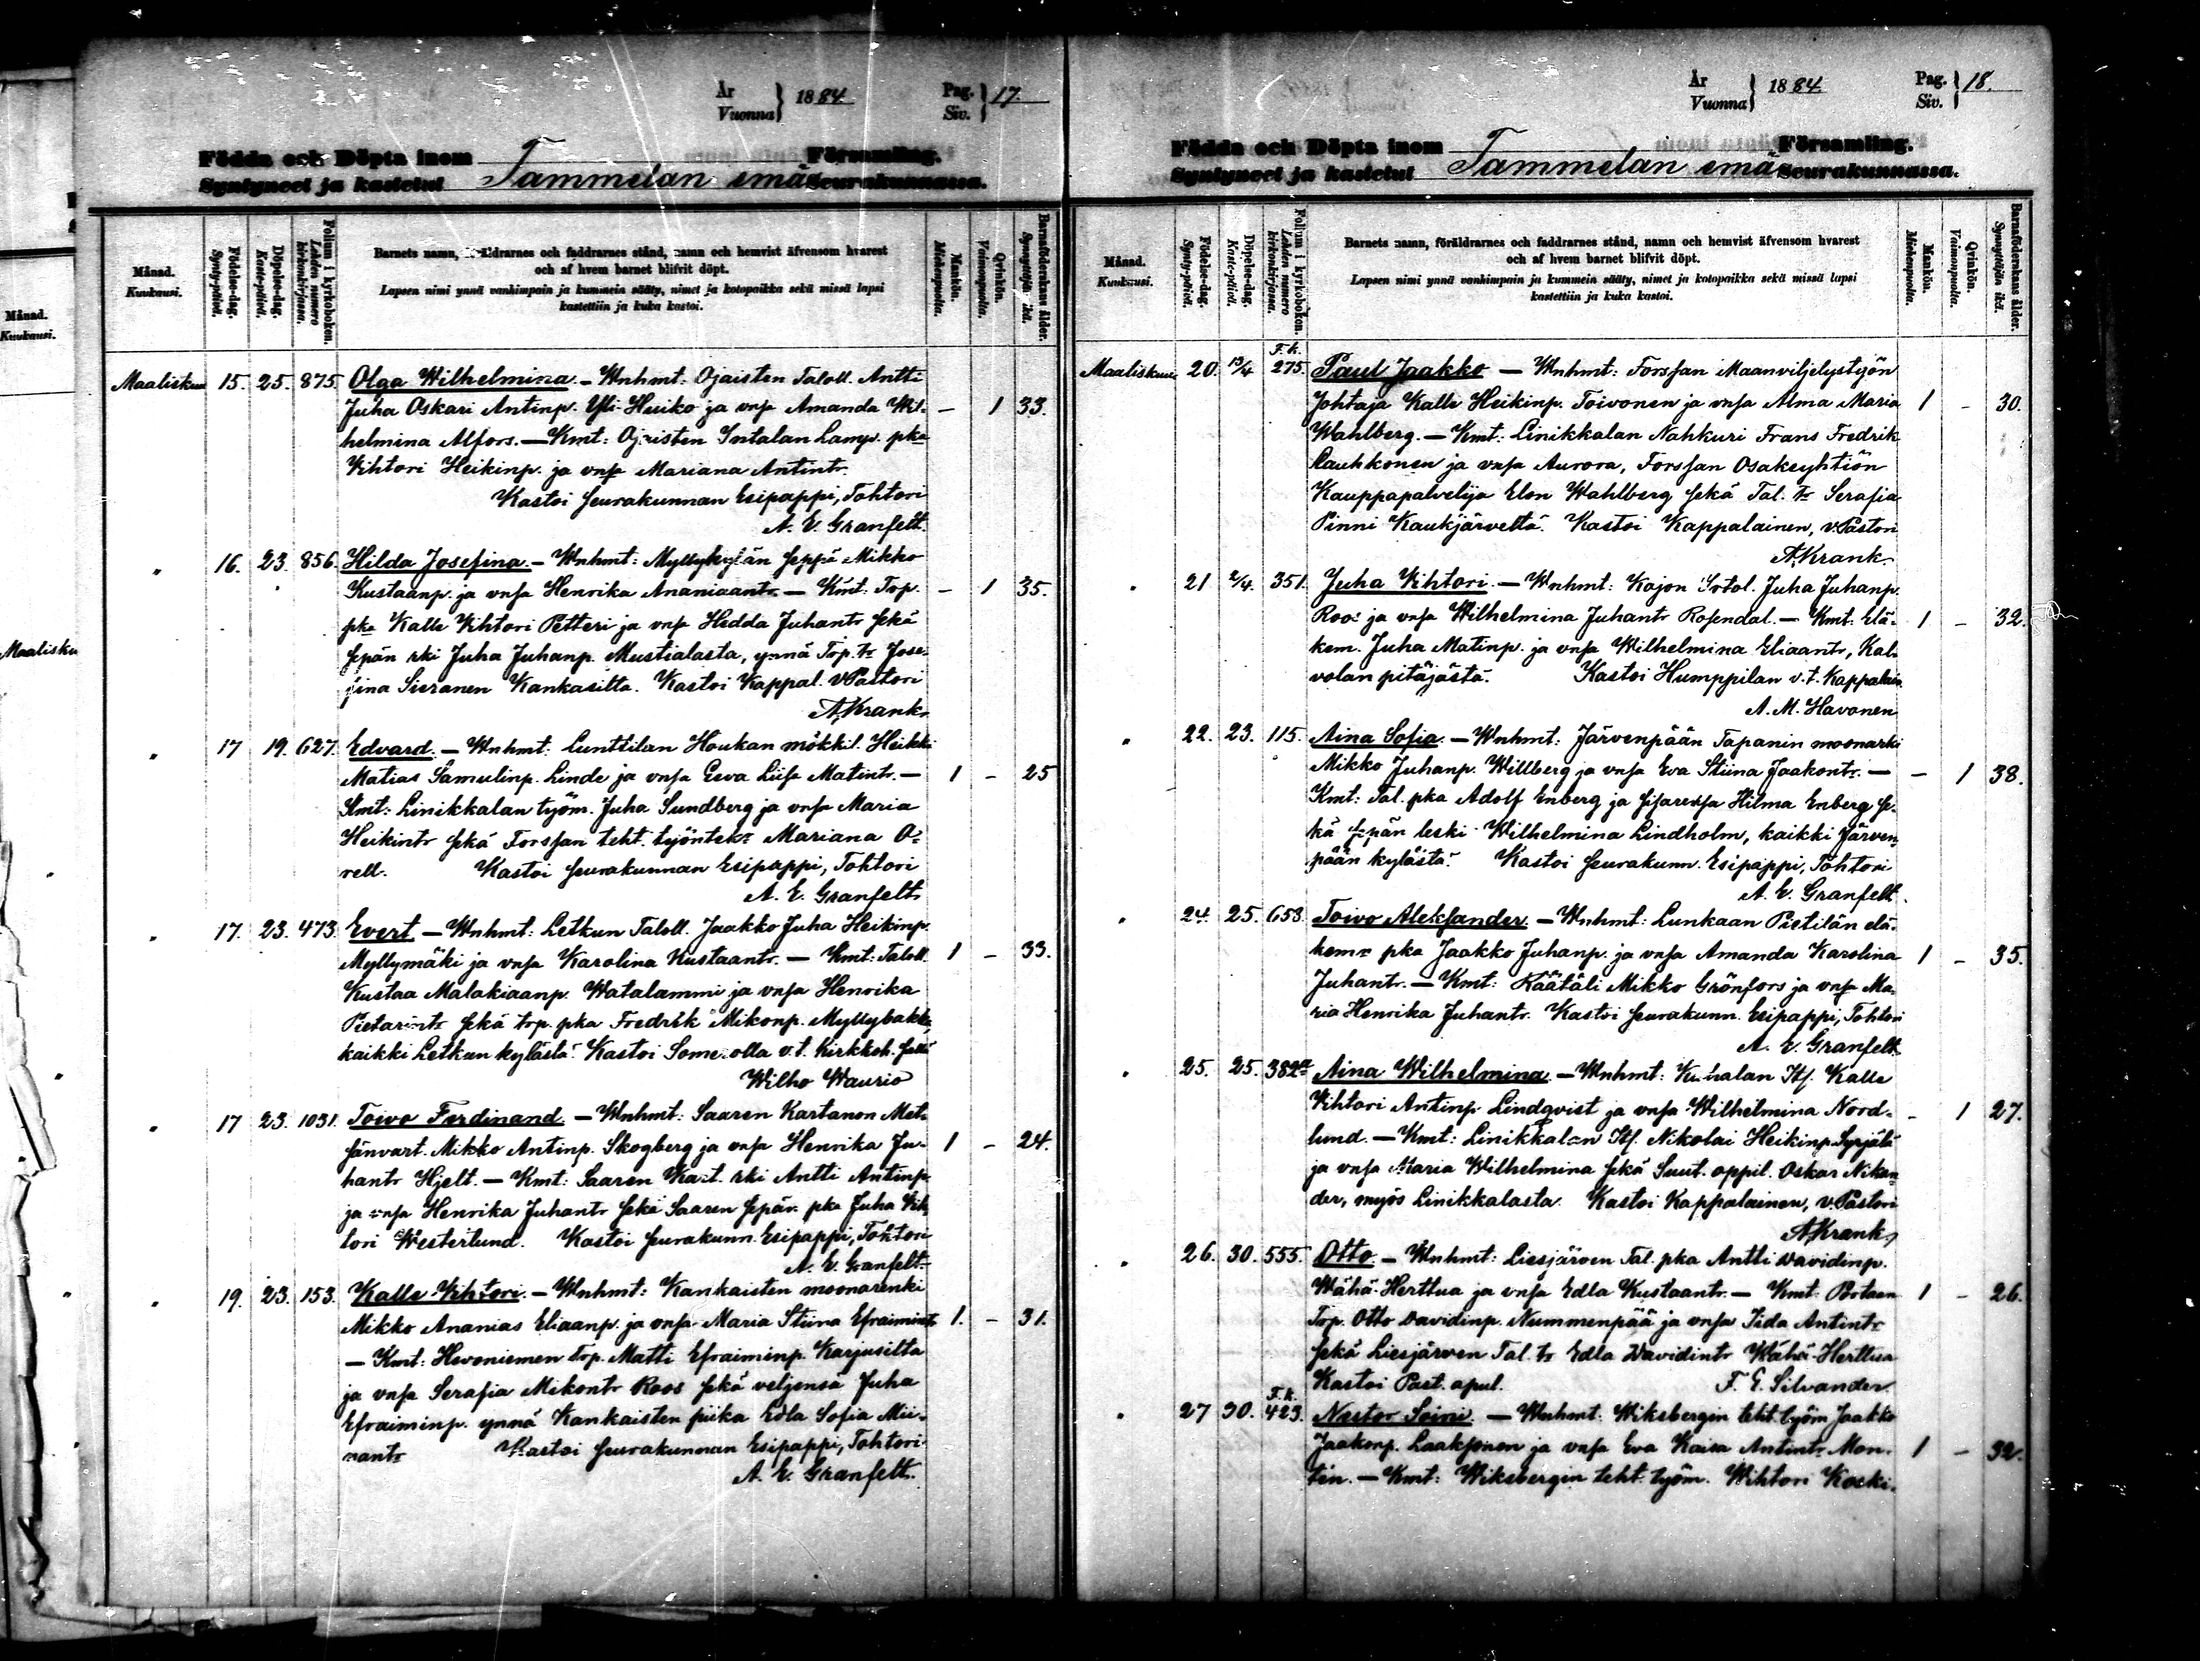 År
Vuonna } 1884.
Pag.
Siv. } 17.
Födda och Döpta inom Församling.
Syntyneet ja kastetut Tammelan emä Seurakunnassa.
Månad.
Kuukausi.
Födelse-dag.
Synty-päivä.
Döpelse-dag.
Kaste-päivä.
Folium i kyrkoboken.
Lehden numero kirkonkirjassa.
Barnets namn, föräldrarnes och faddrarnes stånd, namn och hemvist äfvensom hvarest
och af hvem barnet blifvit döpt.
Lapsen nimi ynnä vanhimpain ja kummein sääty, nimet ja kotopaikka sekä missä lapsi
kastettiin ja kuka kastoi.
Mankön.
Miehenpuolta.
Qvinkön.
Vaimonpuolta.
Barnaföderskans ålder.
Synnyttäjän ikä.
Maaliskuu 15. 25. 875. Olga Wilhelmina. – Wnhmt: Ojaisten Taloll. Antti
Juha Oskari Antinp. Yli-Heiko ja vnsa Amanda Wil- – 1 33.
helmina Alfors. – Kmt: Ojaisten Intalan Lamp. pka
Vihtori Heikinp. ja vnsa Mariana Antintr.
Kastoi seurakunnan Esipappi, Tohtori
A. E. Granfelt.
" 16. 23. 856. Hilda Josefina. – Wnhmt: Myllykylän seppä Mikko
Kustaanp. ja vnsa Henrika Ananiaantr. – Kmt: Torp. – 1 35.
pka Kalle Vihtori Petteri ja vnsa Hedda Juhantr sekä
sepän rki Juha Juhanp. Mustialasta, ynnä Torp. tr Jose-
fina Sieranen Kankasilta. Kastoi Kappal. v. Pastori
A. Krank.
" 17 19. 627. Edvard. – Wnhmt: Lunttilan Houkan mökkil. Heikki
Matias Samulinp. Linde ja vnsa Eeva Liisa Matintr. – 1 – 25
Kmt: Linikkalan työm. Juha Sundberg ja vnsa Maria
Heikintr sekä Forssan teht. työntek: Mariana O-
rell. Kastoi seurakunnan Esipappi, Tohtori
A. E. Granfelt.
" 17. 23. 473. Evert – Wnhmt: Letkun Taloll. Jaakko Juha Heikinp.
Myllymäki ja vnsa Karolina Kustaantr. – Kmt: Taloll. 1 – 33.
Kustaa Malakiaanp. Watalammi ja vnsa Henrika
Pietarintr sekä torp. pka Fredrik Mikonp. Myllybakka,
kaikki Letkun kylästä. Kastoi Somerolla v. t. Kirkkoh.
Wilho Waurio
" 17 23. 1031. Toivo Ferdinand. – Wnhmt: Saaren Kartanon Met-
sänvart. Mikko Antinp. Skogberg ja vnsa Henrika Ju- 1 – 24.
hantr Hjelt. – Kmt: Saaren Kart. rki Antti Antinp.
ja vnsa Henrika Juhantr sekä Saaren sepän pka Juha Vih-
tori Westerlund. Kastoi seurakunn. Esipappi, Tohtori
A. E. Granfelt.
" 19. 23. 153. Kalle Vihtori. – Wnhmt: Kankaisten moonarenki
Mikko Ananias Eliaanp. ja vnsa Maria Stiina Efraimintr 1. – 31.
– Kmt: Hevoniemen torp. Matti Efraiminp. Karjusilta
ja vnsa Serafia Mikontr Roos sekä veljensä Juha
Efraiminp. ynnä Kankaisten piika Edla Sofia Mii-
nantr Kastoi seurakunnan Esipappi, Tohtori
A. E. Granfelt.
År
Vuonna } 1884.
Pag.
Siv. } 18.
Födda och Döpta inom Församling.
Syntyneet ja kastetut Tammelan emä Seurakunnassa.
Månad.
Kuukausi.
Födelse-dag.
Synty-päivä.
Döpelse-dag.
Kaste-päivä.
Folium i kyrkoboken.
Lehden numero kirkonkirjassa.
Barnets namn, föräldrarnes och faddrarnes stånd, namn och hemvist äfvensom hvarest
och af hvem barnet blifvit döpt.
Lapsen nimi ynnä vanhimpain ja kummein sääty, nimet ja kotopaikka sekä missä lapsi
kastettiin ja kuka kastoi.
Mankön.
Miehenpuolta.
Qvinkön.
Vaimonpuolta.
Barnaföderskans ålder.
Synnyttäjän ikä.
F. k.
Maaliskuu 20. 13/4 275. Paul Jaakko – Wnhmt: Forssan Maanviljelystyön
Johtaja Kalle Heikinp. Toivonen ja vnsa Alma Maria 1 – 30.
Wahlberg. – Kmt: Linikkalan Nahkuri Frans Fredrik
Rauhkonen ja vnsa Aurora, Forssan Osakeyhtiön
Kauppapalvelija Elon Wahlberg sekä Tal. tr Serafia
Pinni Kaukjärveltä. Kastoi Kappalainen, v. Pastori
A. Krank.
" 21 2/4. 351. Juha Vihtori. – Wnhmt: Kojon Sotol. Juha Juhanp.
Roos ja vnsa Wilhelmina Juhantr Rosendal. – Kmt: Elä- 1 – 32.
kem. Juha Matinp. ja vnsa Wilhelmina Eliaantr, Kal-
volan pitäjästä. Kastoi Humppilan v. t. Kappalain.
A. M. Havonen
" 22. 23. 115. Aina Sofia. – Wnhmt: Järvenpään Tapanin moonarki
Mikko Juhanp. Willberg ja vnsa Eva Stiina Jaakontr. – – 1 38.
Kmt: Tal. pka Adolf Enberg ja sisarensa Hilma Enberg se-
kä sepän leski Wilhelmina Lindholm, kaikki Järven-
pään kylästä. Kastoi seurakunn. Esipappi, Tohtori
A. E. Granfelt.
" 24. 25. 658. Toivo Aleksander. – Wnhmt: Lunkaan Pietilän elä-
kem: pka Jaakko Juhanp. ja vnsa Amanda Karolina 1 – 35.
Juhantr. – Kmt: Räätäli Mikko Grönfors ja vnsa Ma-
ria Henrika Juhantr. Kastoi seurakunn. Esipappi, Tohtori
A. E. Granfelt.
" 25. 25. 382 Aina Wilhelmina. – Wnhmt: Kuhalan Itf. Kalle
Vihtori Antinp. Lindqvist ja vnsa Wilhelmina Nord- – 1 27.
lund. – Kmt: Linikkalan Itf. Nikolai Heikinp. Syrjälä
ja vnsa Maria Wilhelmina sekä Suut. oppil. Oskar Nikan-
der, myös Linikkalasta. Kastoi Kappalainen, v. Pastori
A. Krank.
" 26. 30. 555. Otto. – Wnhmt: Liesjärven Tal. pka Antti Davidinp.
Wähä-Herttua ja vnsa Edla Kustaantr. – Kmt: Portaan 1 – 26.
Torp. Otto Davidinp. Nummenpää ja vnsa Iida Antintr
sekä Liesjärven Tal. tr Edla Davidintr Wähä-Herttua
Kastoi Past. apul. F. E. Silvander.
F. k.
" 27 30. 423. Nestor Seini. – Wnhmt: Wiksbergin teht. työm. Jaakko
Jaakonp. Laaksonen ja vnsa Eva Kaisa Antintr. Mon- 1 – 32.
tin. – Kmt: Wiksbergin teht. työm. Wihtori Koski,
Månad.
Kuukausi.
Maalisku